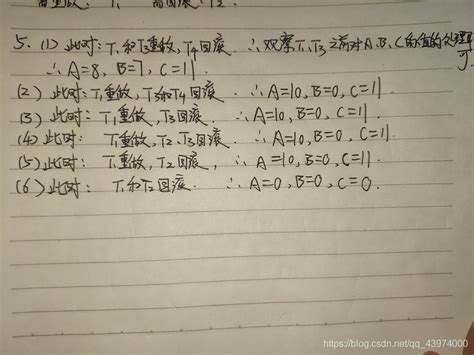 5. (1) 此时: T₁和T₃重做, T₄回滚. ∴观察T₁、T₃之前对A、B、C的值的处理即可
∴ A=8, B=7, C=11
(2) 此时: T₁重做, T₃和T₄回滚. ∴ A=10, B=0, C=11.
(3) 此时: T₁重做, T₃回滚. ∴ A=10, B=0, C=11.
(4) 此时: T₁重做, T₂、T₃回滚. ∴ A=10, B=0, C=11.
(5) 此时: T₁重做, T₂回滚, ∴ A=10, B=0, C=11
(6) 此时: T₁和T₂回滚. ∴ A=0, B=0, C=0.
https://blog.csdn.net/qq_43974000